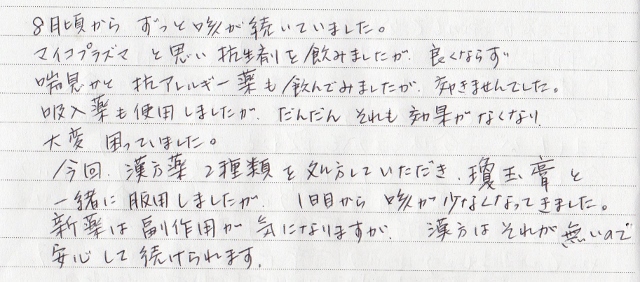 8月頃から ずっと咳が続いていました。
マイコプラズマ と思い 抗生剤を飲みましたが、良くならず
喘息かと 抗アレルギー薬も飲んでみましたが、効きませんでした。
吸入薬も使用しましたが、だんだん それも 効果がなくなり
大変 困っていました。
今回、漢方薬 2種類を処方していただき、瓊玉膏と
一緒に服用しましたが、1日目から 咳が少なくなってきました。
新薬は副作用が気になりますが、漢方はそれが無いので
安心して続けられます。